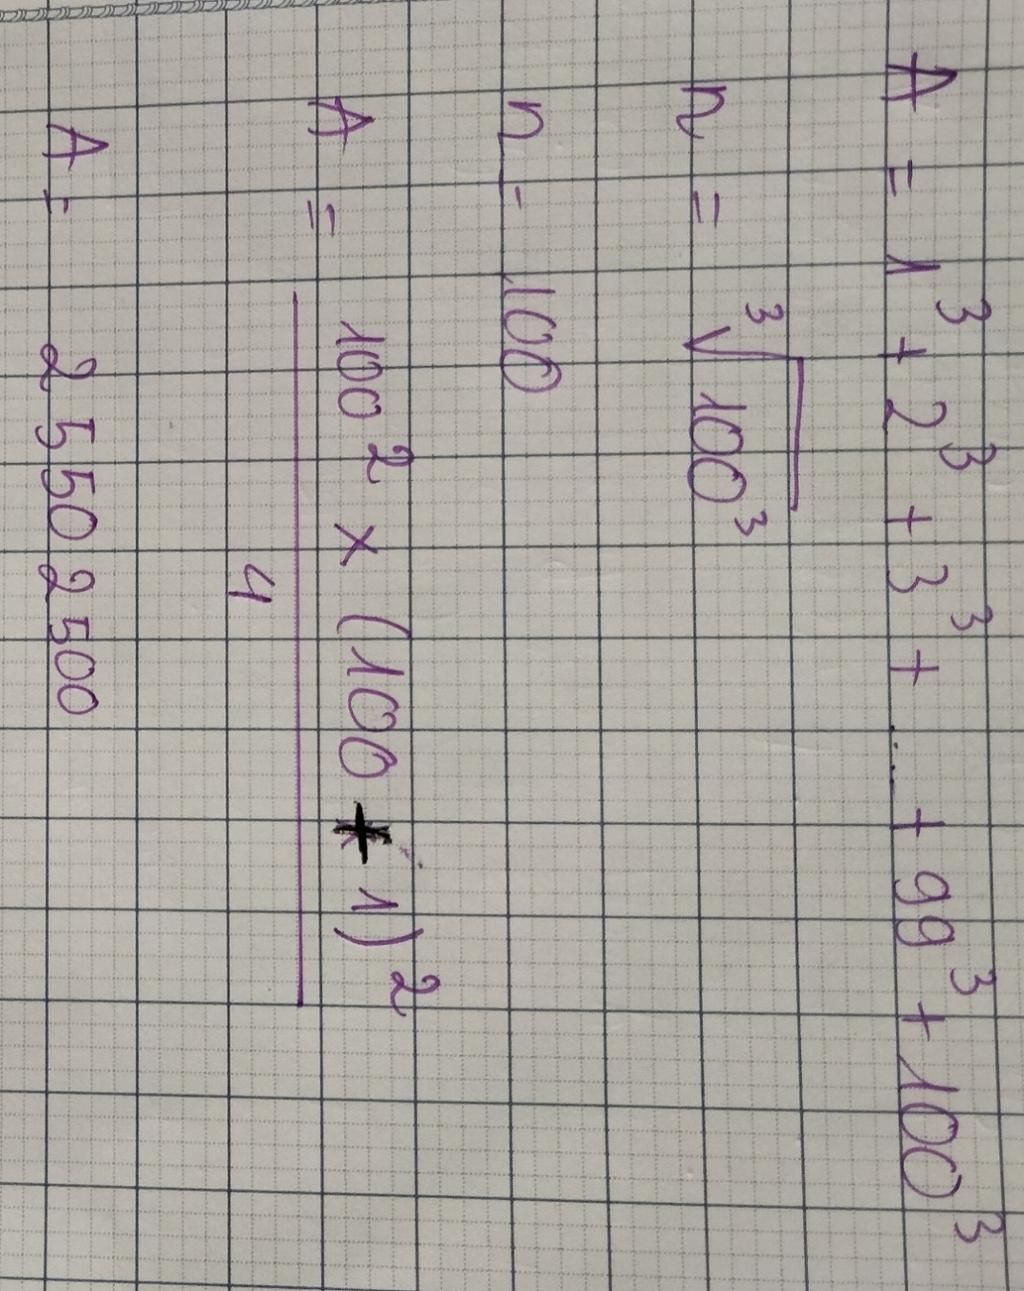 A = 1³ + 2³ + 3³ + .... + 99³ + 100³
n = ³√100³
n = 100
A = 100² × (100 + 1)²
4
A = 2 550 2 500